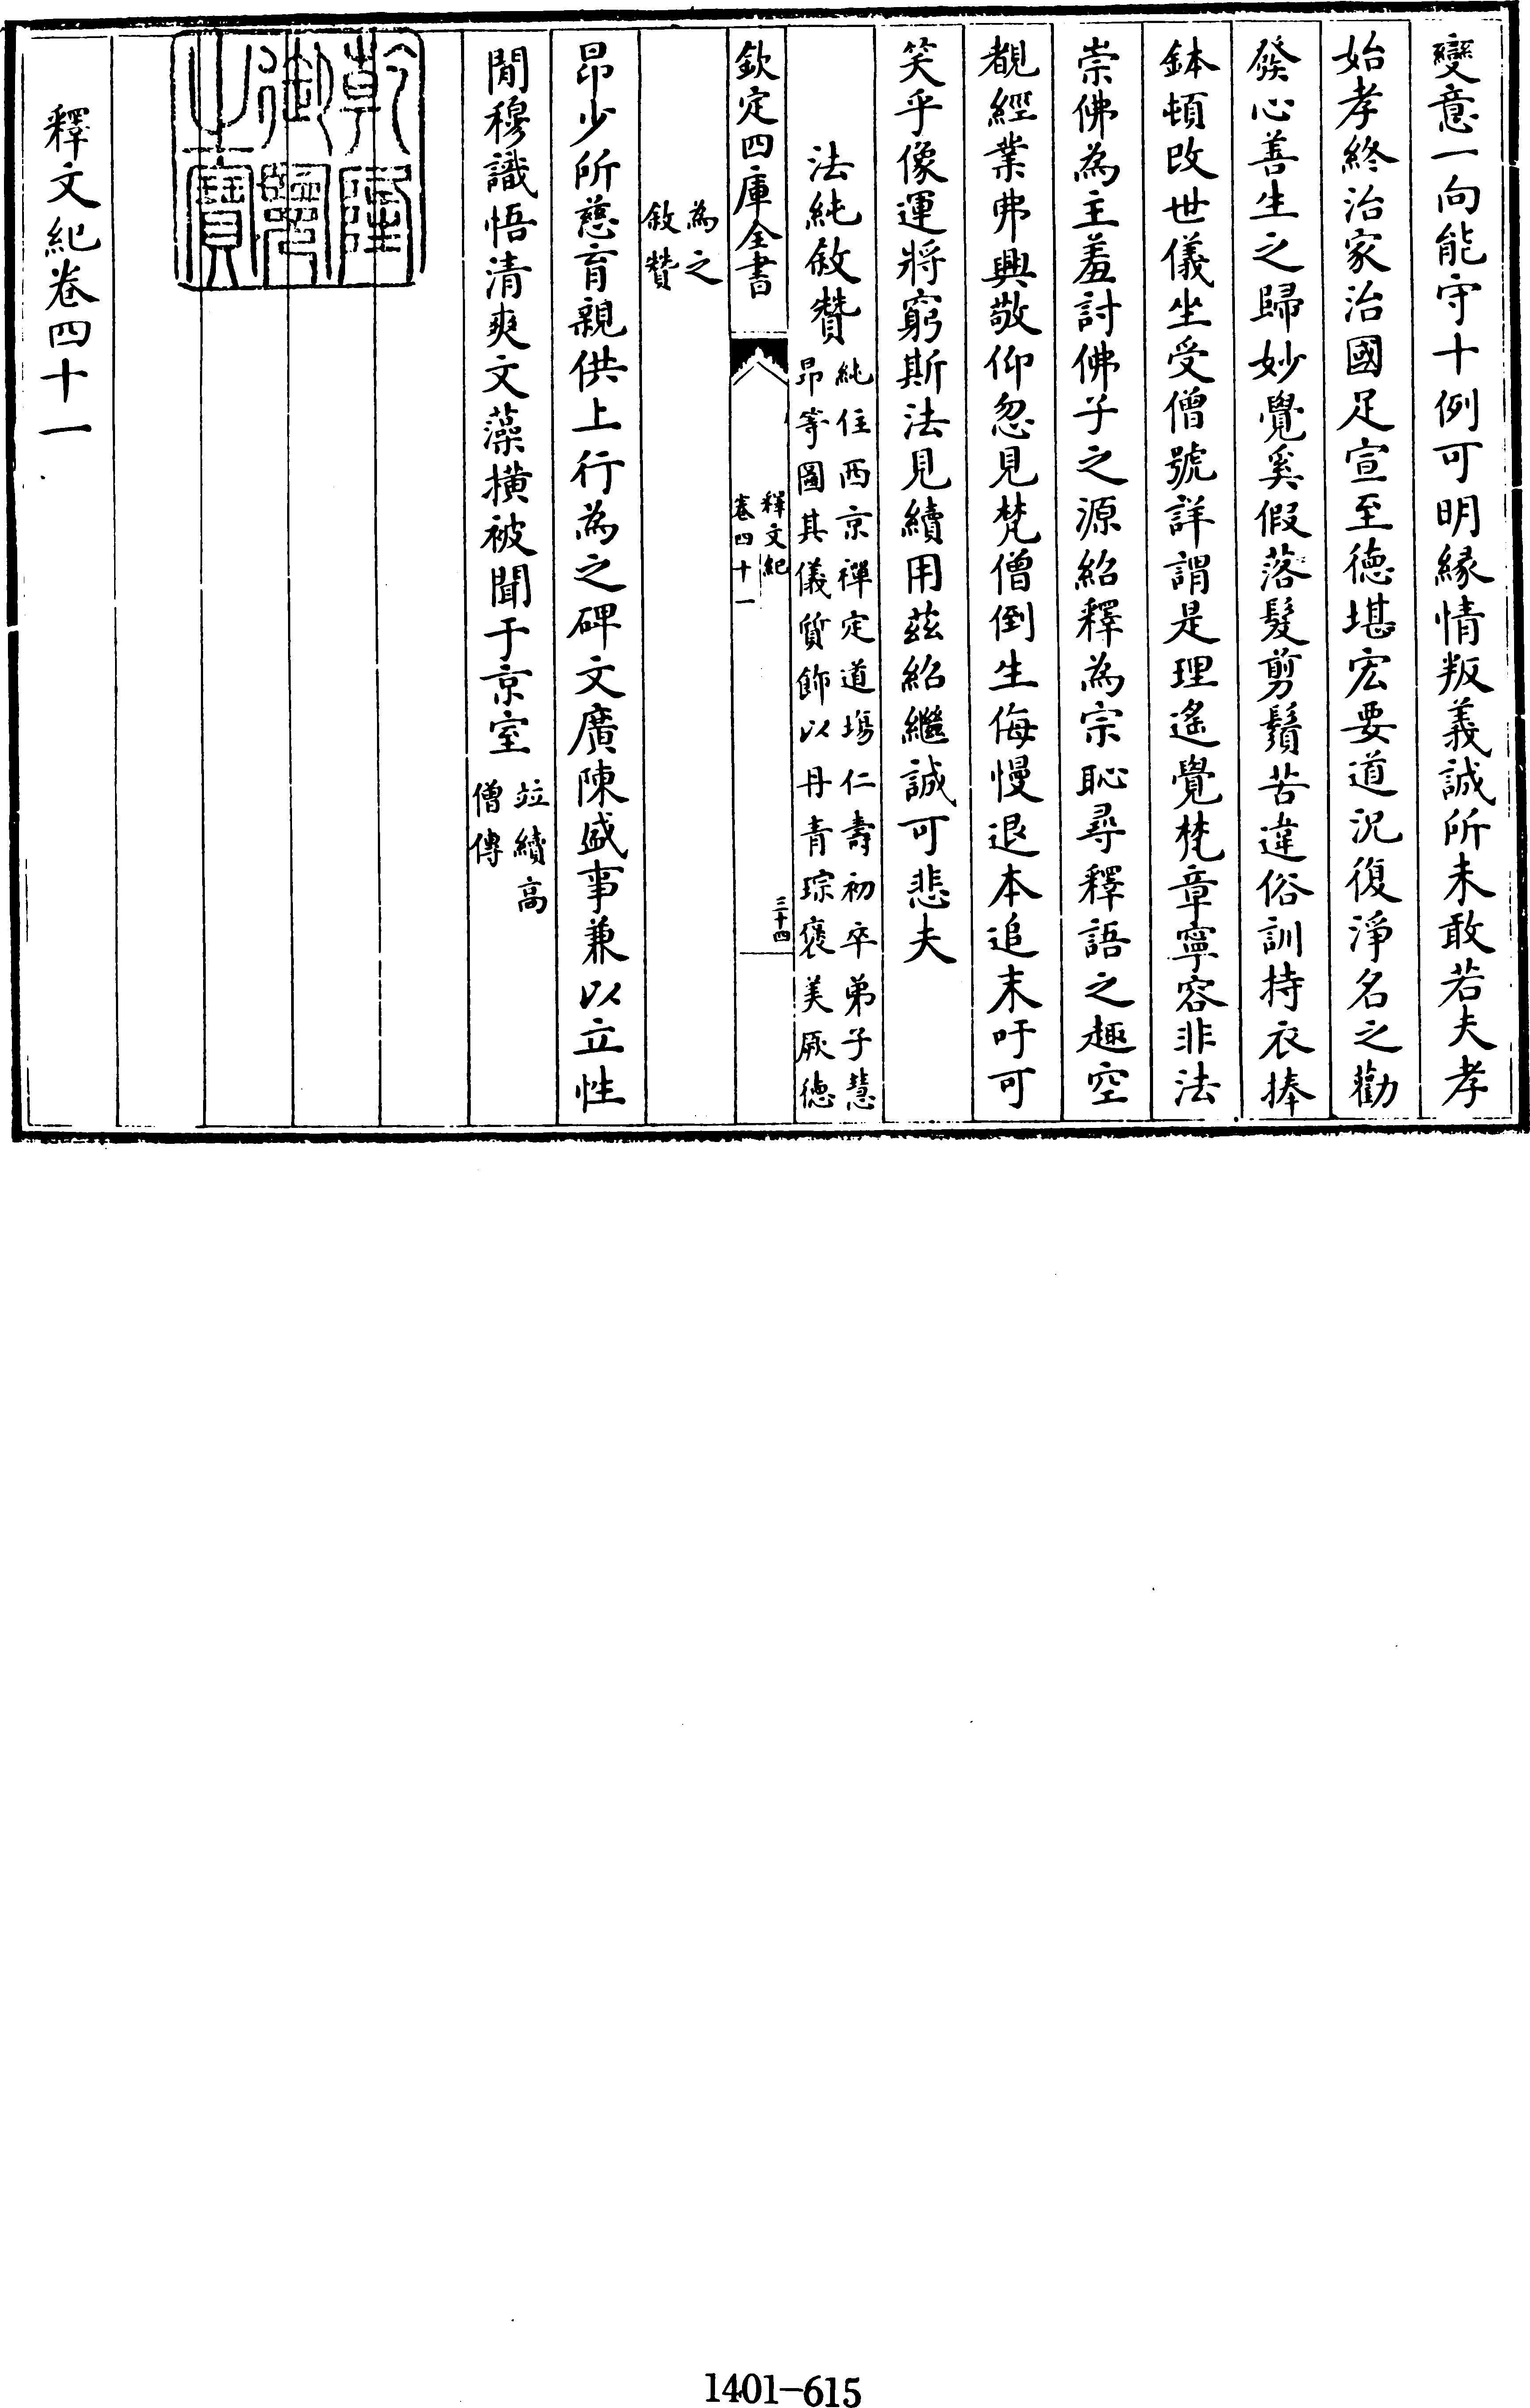 變意一向能守十例可明縁情叛義誠所未敢若夫孝
始孝終治家治國足宣至徳堪宏要道況復淨名之勸
發心善生之歸妙覺奚假落髮剪鬚苦違俗訓持衣捧
鉢頓改世儀坐受僧號詳謂是理遙覺梵章寧容非法
崇佛為主羞討佛子之源紹釋為宗恥尋釋語之趣空
覩經業弗興敬仰忽見梵僧倒生侮慢退本追末吁可
笑乎像運將窮斯法見續用茲紹繼誠可悲夫
法純敘贊
純住西京禪定道場仁壽初卒弟子慧
昂等圖其儀質飾以丹青琮褒美厥徳
欽定四庫全書
釋文紀
卷四十一
三十四
為之
敘贊
昂少所慈育親供上行為之碑文廣陳盛事兼以立性
閒穆識悟清爽文藻橫被聞于京室
竝續高
僧傳
乾隆
御覽
之寶
釋文紀卷四十一
1401-615